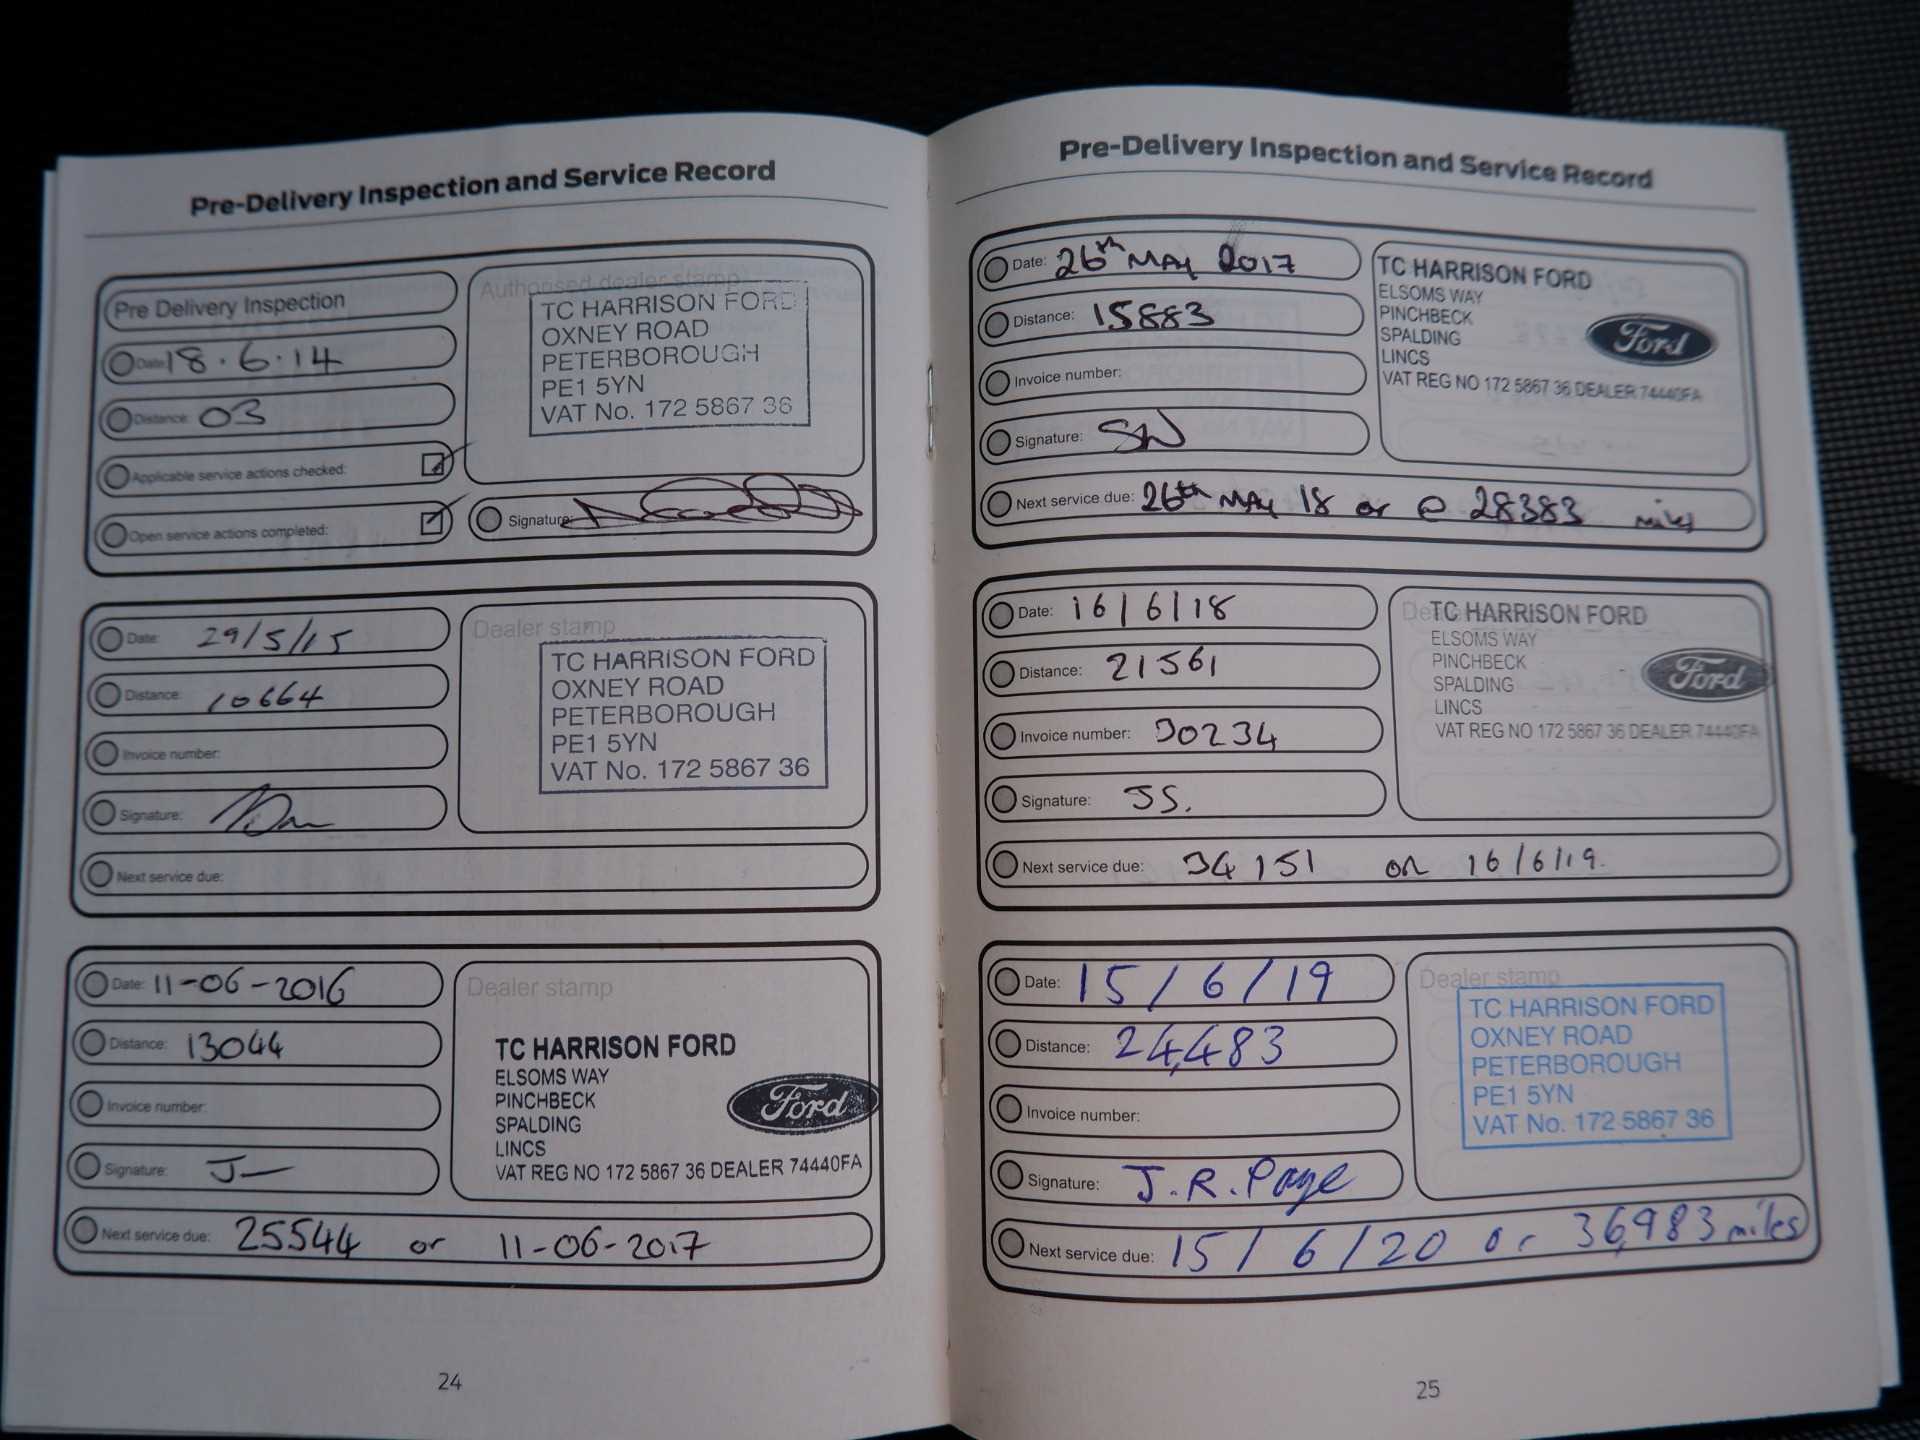 Pre-Delivery Inspection and Service Record
Pre Delivery Inspection
Date: 18.6.14
Distance: 03
Applicable service actions checked:
Open service actions completed:
Authorised dealer stamp
TC HARRISON FORD
OXNEY ROAD
PETERBOROUGH
PE1 5YN
VAT No. 172 5867 36
Signature:
Date: 29/5/15
Distance: 10664
Invoice number:
Signature:
Next service due:
Dealer stamp
TC HARRISON FORD
OXNEY ROAD
PETERBOROUGH
PE1 5YN
VAT No. 172 5867 36
Date: 11-06-2016
Distance: 13044
Invoice number:
Signature: J
Next service due: 25544 or 11-06-2017
Dealer stamp
TC HARRISON FORD
ELSOMS WAY
PINCHBECK
SPALDING
LINCS
VAT REG NO 172 5867 36 DEALER 74440FA
Ford
24
Pre-Delivery Inspection and Service Record
Date: 26th MAY 2017
Distance: 15883
Invoice number:
Signature: SW
Next service due: 26th MAY 18 or @ 28383 miles
TC HARRISON FORD
ELSOMS WAY
PINCHBECK
SPALDING
LINCS
VAT REG NO 172 5867 36 DEALER 74440FA
Ford
Date: 16/6/18
Distance: 21561
Invoice number: 30234
Signature: JS.
Next service due: 34151 OR 16/6/19.
TC HARRISON FORD
ELSOMS WAY
PINCHBECK
SPALDING
LINCS
VAT REG NO 172 5867 36 DEALER 74440FA
Ford
Date: 15/6/19
Distance: 24,483
Invoice number:
Signature: J.R.Page
Next service due: 15/6/20 or 36,983 miles
Dealer stamp
TC HARRISON FORD
OXNEY ROAD
PETERBOROUGH
PE1 5YN
VAT No. 172 5867 36
25